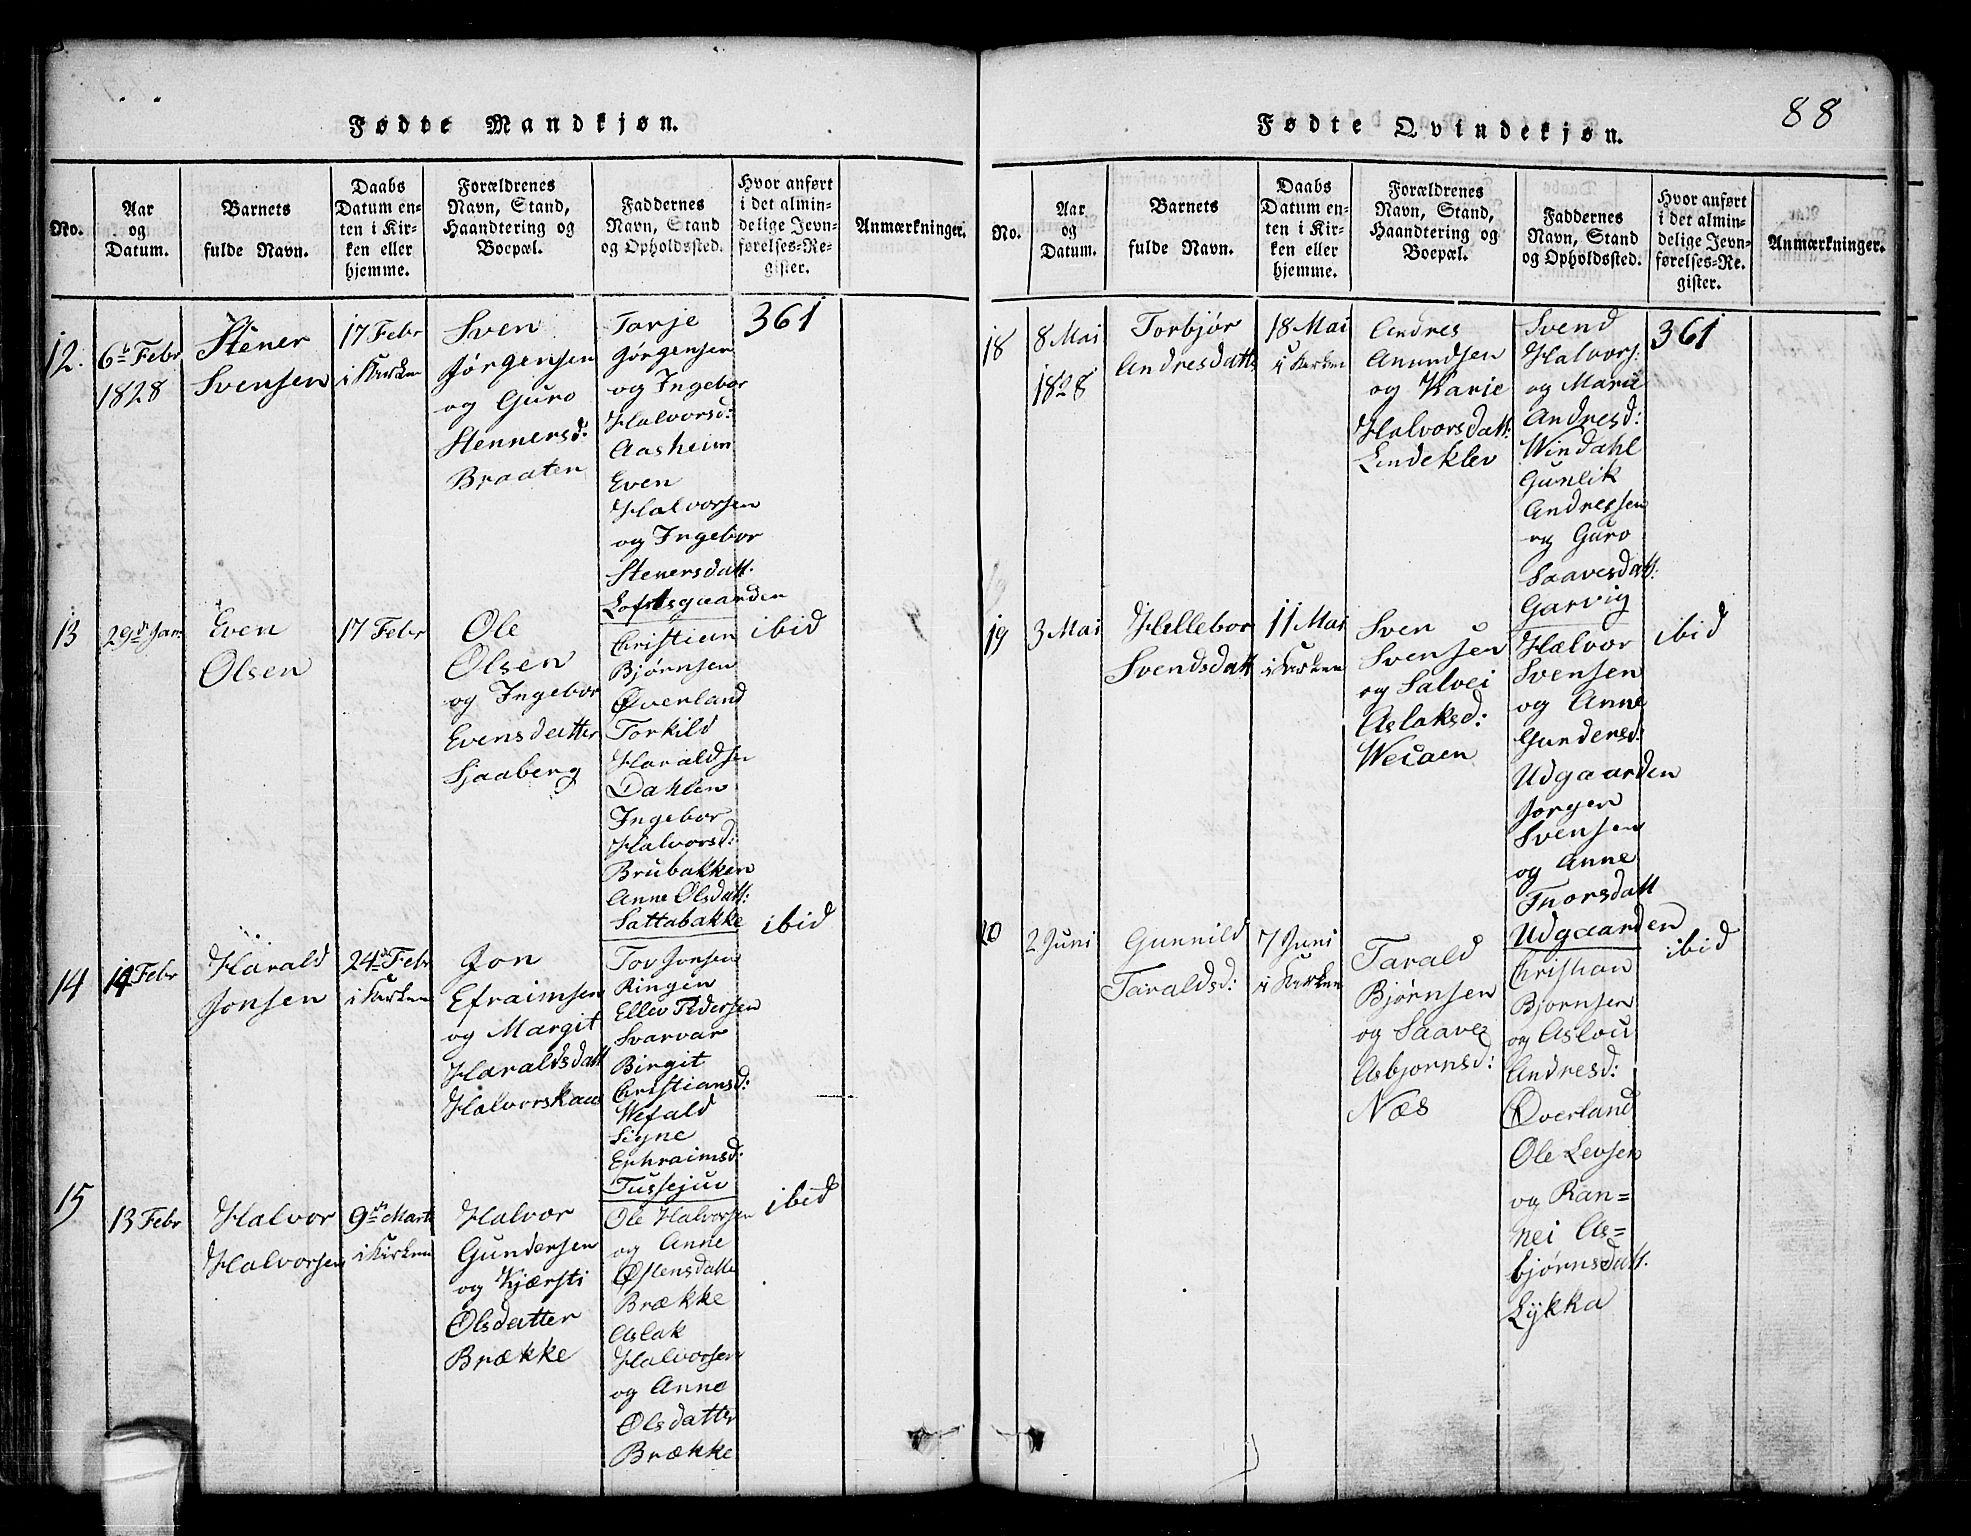 88
Fødte Mandkjøn.
No.
Aar
og
Datum.
Barnets
fulde Navn.
Daabs
Datum en-
ten i Kir-
ken eller
hjemme.
Forældrenes
Navn, Stand,
Haandtering og
Boepæl.
Faddernes
Navn, Stand
og Opholdssted.
Hvor anført
i det almin-
delige Jevn-
førelses-Re-
gister.
Anmærkninger.
12.
6te Febr
1828
Stener
Svensen
17 Febr
i Kirken
Sven
Jørgensen
og Guro
Stennersd:
Braaten
Tarje
Jørgensen
og Ingebor
Halvorsd:
Aasheim
Even
Halvorsen
og Ingebor
Stenersdatt.
Loftsgaarden
361
13
29de Jan
Even
Olsen
17 Febr
Ole
Olsen
og Ingebor
Evensdatter
Sjaaberg
Christian
Bjørnsen
Øverland
Torkild
Haraldsen
Dahlen
Ingebor
Halvorsd:
Brubakken
Anne Olsdatt:
Sattabakke
ibid
14
14 Febr
Harald
Jonsen
24de Febr
i Kirken
Jon
Efraimsen
og Margit
Haraldsdatt
Halvorskaas
Tov Jonsen
Ringen
Ellev Pedersen
Svarvar
Birgit
Christiansd:
Wefald
Signe
Ephraimsd:
Tussejuv
ibid
15
13 Febr
Halvor
Halvorsen
9de Marts
i Kirken
Halvor
Gundersen
og Kjærsti
Olsdatter
Brække
Ole Halvorsen
og Anne
Østensdatte
Brække
Aslak
Halvorsen
og Anne
Olsdatter
Brække
ibid
Fødte Qvindekjøn.
No.
Aar
og
Datum.
Barnets
fulde Navn.
Daabs
Datum en-
ten i Kir-
ken eller
hjemme.
Forældrenes
Navn, Stand,
Haandtering og
Boepæl.
Faddernes
Navn, Stand
og Opholdssted.
Hvor anført
i det almin-
delige Jevn-
førelses-Re-
gister.
Anmærkninger.
18
8 Mai
1828
Torbjør
Andresdatt
18 Mai
i Kirken
Andres
Anundsen
og Karie
Halvorsdatt:
Lindeklev
Svend
Halvors:
og Marie
Andresd:
Windahl
Gunlik
Andresen
og Guro
Saavesdatt:
Garvig
361
19
3 Mai
Hellebor
Svendsdatt
11 Mai
i Kirken
Sven
Svensen
og Salvei
Aslaksd:
Weiaen
Halvor
Svensen
og Anne
Gundersd:
Udgaarden
Jorgen
Svensen
og Anne
Thorsdatt
Udgaarden
ibid
20
2 Juni
Gunnild
Taraldsd:
7 Juni
i Kirken
Tarald
Bjørnsen
og Saave
Asbjornsd:
Næs
Christian
Bjornsen
og Aslou
Andresd:
Øverland
Ole Levsen
og Ran=
nei As=
bjørnsdatt.
Lykka
ibid